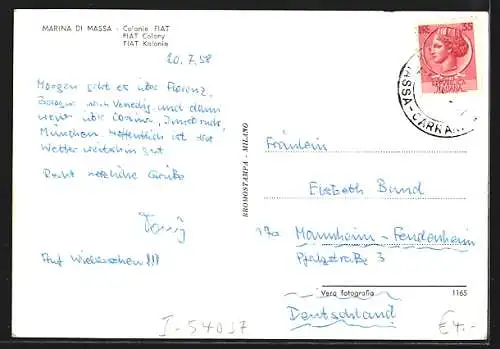 MARINA DI MASSA - Colonie FIAT
FIAT Colony
FIAT Kolonie
20.7.58
Morgen geht es über Florenz,
Bologna nach Venedig und dann
weiter über
München. Hoffentlich ist das
Wetter weiterhin gut
Recht herzliche Grüße
Auf Wiedersehen!!!
BROMOSTAMPA - MILANO
35
MASSA-CARRARA
Fräulein
Elsbeth Bund
17a Mannheim-Feudenheim
Pfalzstraße 3
Vera fotografia 1165
Deutschland
I-54037
€4.-